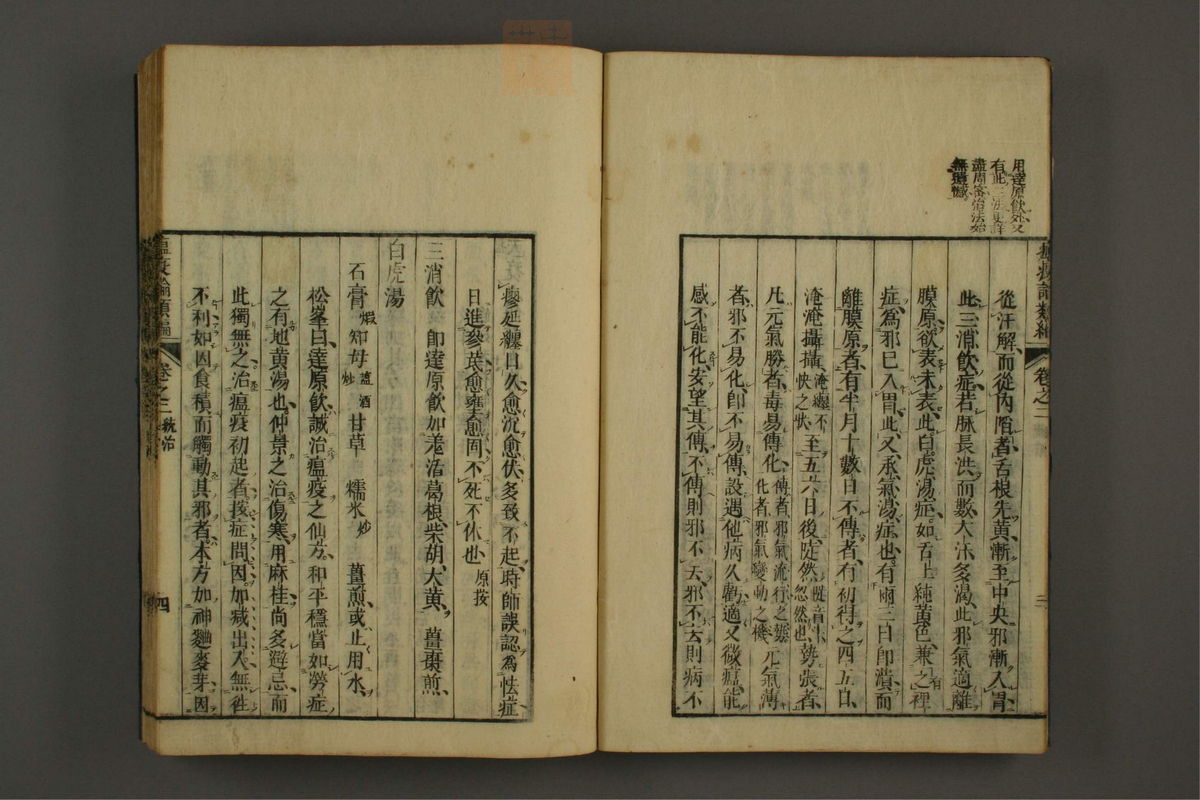 用達原飲處又
有此三法更詳
盡周密治法始
無遺憾
卷之三
三
從汗解而從內陷者舌根先黃漸至中央邪漸入胃
此三消飲症若脉長洪而數大汗多渴此邪氣適離
膜原欲表未表此白虎湯症如舌上純黃色兼之裡
症爲邪已入胃此又承氣湯症也有兩三日卽潰而
離膜原者有半月十數日不傳者有初得之四五日
淹淹攝攝淹纏不快之狀至五六日後陡然忽然也勢張者
凡元氣勝者毒易傳化傳者邪氣流行之機化者邪氣變動之機元氣薄
者邪不易化卽不易傳設遇他病久虧適又微瘟能
感不能化安望其傳不傳則邪不去邪不去則病不
瘳延纏日久愈沉愈伏多致不起時師誤認為怯症
日進參茋愈壅愈固不死不休也原按
三消飲 卽達原飲加羌活葛根柴胡大黃 薑棗煎
白虎湯
石膏煅 知母鹽酒炒 甘草 糯米炒 薑煎或止用水
松峯曰達原飲誠治瘟疫之仙方和平穩當如勞症
之有地黃湯也仲景之治傷寒用麻桂尚多避忌而
此獨無之治瘟疫初起者按症問因加減出入無往
不利如因食積而觸動其邪者本方加神麯麥芽因
瘟疫論類編
卷之三 統治
四